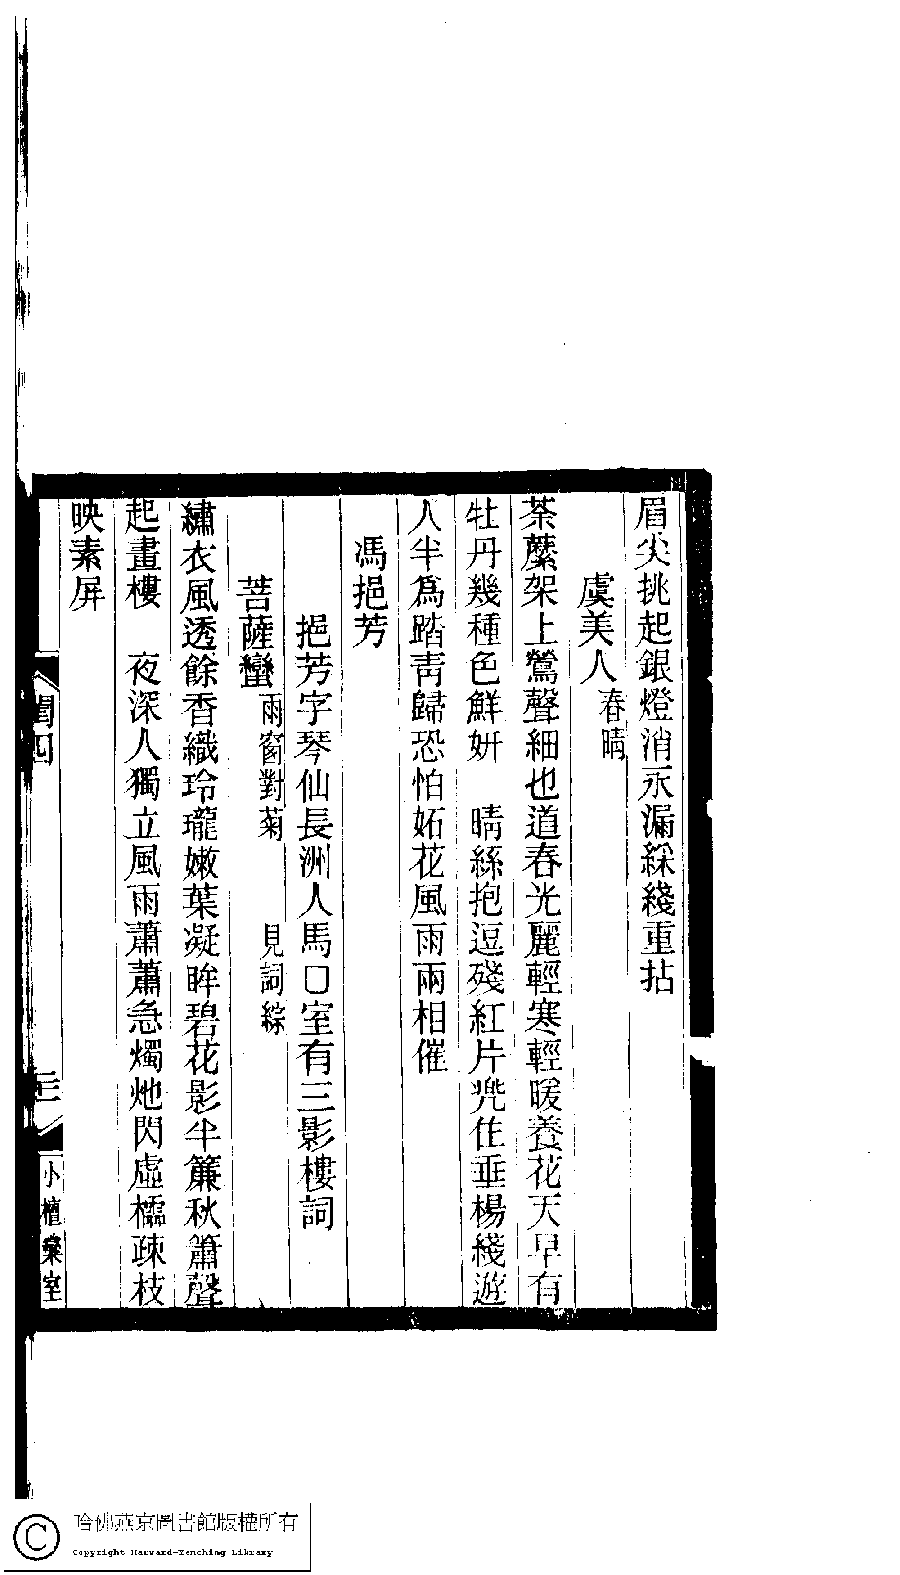 眉尖挑起銀燈消永漏綵綫重拈
虞美人春晴
荼䕷架上鶯聲細也道春光麗輕寒輕暖養花天早有
牡丹幾種色鮮妍　晴絲抱逗殘紅片兠住垂楊綫遊
人半爲踏靑歸恐怕妬花風雨兩相催
馮挹芳
挹芳字琴仙長洲人馬口室有三影樓詞
菩薩蠻雨窗對菊　見詞綜
繡衣風透餘香織玲瓏嫩葉凝眸碧花影半簾秋簫聲
起畫樓　夜深人獨立風雨蕭蕭急燭灺閃虛櫺疎枝
映素屏
閨四
小檀欒室
哈佛燕京圖書館版權所有
Copyright Harvard-Yenching Library